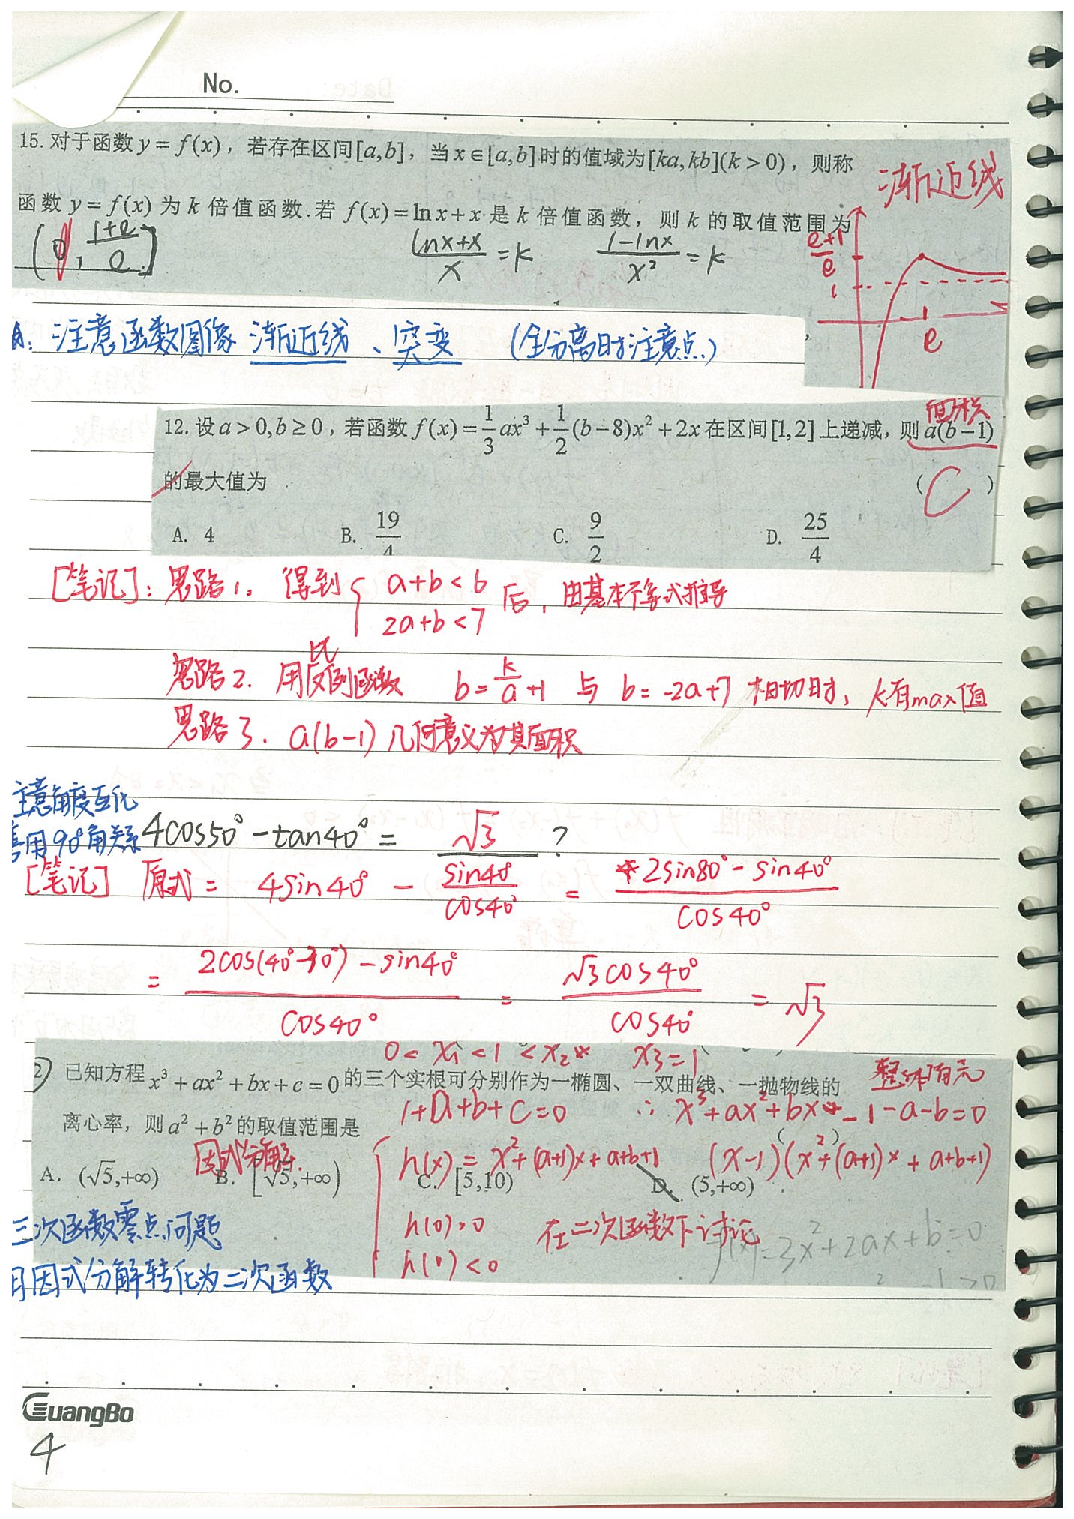 No.
15. 对于函数 y = f(x)，若存在区间[a,b]，当 x∈[a,b]时的值域为[ka,kb](k > 0)，则称
渐近线
函数 y = f(x) 为 k 倍值函数.若 f(x) = ln x + x 是 k 倍值函数，则 k 的取值范围为
(0, (1+e)/e]
(lnx+x)/x = k (1-lnx)/x² = k
(e+1)/e
1
e
注意函数图像渐近线、突变 (全分离时注意点)
面积
12. 设 a > 0, b ≥ 0，若函数 f(x) = 1/3 ax³ + 1/2 (b-8)x² + 2x 在区间[1,2]上递减，则 a(b-1)
的最大值为 ( C )
A. 4 B. 19/4 C. 9/2 D. 25/4
[笔记]: 思路1. 得到 { a+b<6 2a+b<7 后, 由基本不等式推导
思路2. 用反比例函数 b = k/a +1 与 b = -2a+7 相切时, k有max值
思路3. a(b-1) 几何意义为其面积
注意角度互化
善用90°角关系
4cos50° - tan40° = √3 ?
[笔记] 原式 = 4sin40° - sin40/cos40° = (2sin80° - sin40°)/cos40°
= (2cos(40°-30°) - sin40°)/cos40° = √3cos40°/cos40° = √3
0 < x₁ < 1 < x₂ x₃ = 1
2) 已知方程 x³ + ax² + bx + c = 0 的三个实根可分别作为一椭圆、一双曲线、一抛物线的
整体消元
1+a+b+c=0 ∴ x³+ax²+bx-1-a-b=0
离心率，则 a² + b² 的取值范围是 ( )
因式分解. h(x) = x²+(a+1)x+a+b+1 (x-1)(x²+(a+1)x+a+b+1)
A. (√5,+∞) B. [√5,+∞) C. [5,10) D. (5,+∞)
h(0)>0 在二次函数下讨论
=3x²+2ax+b=0
h(1)<0
三次函数零点问题
用因式分解转化为二次函数
GuangBo
4